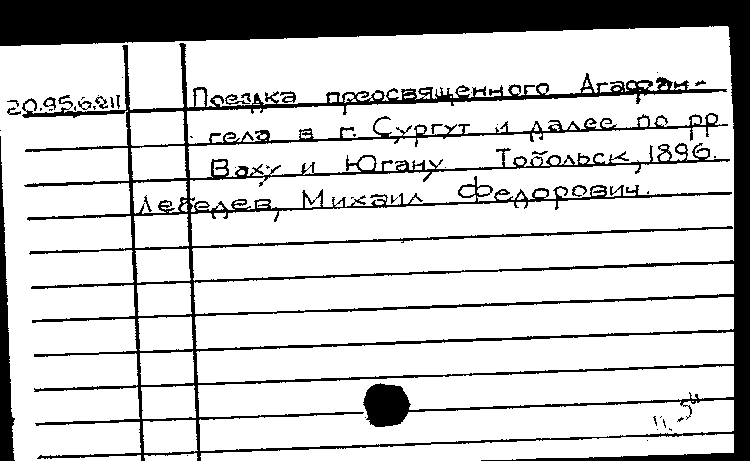 20.95.6.211 Поездка преосвященного Агафан-
гела в г. Сургут и далее по рр
Ваху и Югану Тобольск, 1896.
Лебедев, Михаил Федорович.